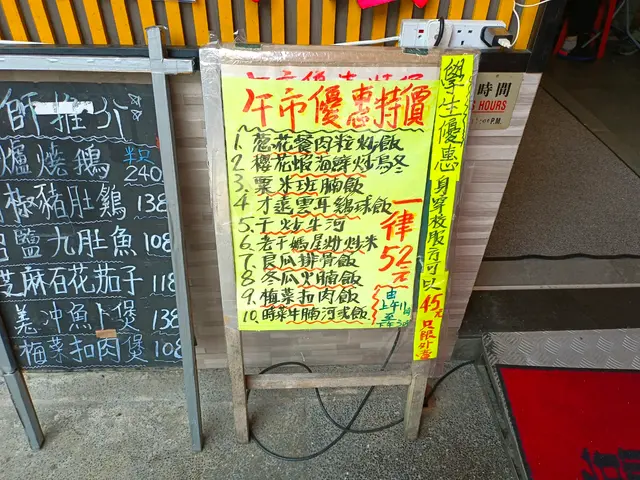 師推介
爐燒鵝 240
椒豬肚鷄 138
鹽九肚魚 108
芝麻石花茄子 118
羗沖魚卜煲 138
梅菜扣肉煲 108
午市優惠特價
1. 蔥花餐肉粒炒飯
2. 櫻花蝦海鮮炒烏冬
3. 粟米班腩飯
4. 才遠雲耳鷄球飯
5. 干炒牛河
6. 老干媽尾炒米
7. 良瓜排骨飯
8. 冬瓜火腩飯
9. 梅菜扣肉飯
10. 時菜牛腩河或飯
一律52元
由上午11
至
學生優惠
身穿校服方可以
45元
只限外賣
時間
HOURS
P.M.